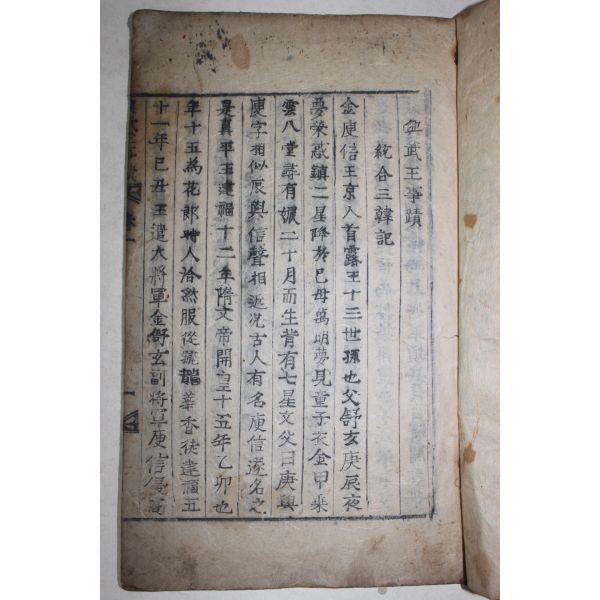 興武王事蹟
統合三韓記
金庾信王京人首露王十三世孫也父舒玄庚辰夜
夢熒惑鎮二星降於己母萬明夢見童子衣金甲乘
雲八堂尋有娠二十月而生背有七星文父曰庚與
庾字相似辰與信聲相近况古人有名庾信遂名之
是真平王建福十二年隋文帝開皇十五年乙卯也
年十五為花郞時人洽然服從號龍華香徒建福五
十一年己丑王遣大將軍金舒玄副將軍庾信侵高